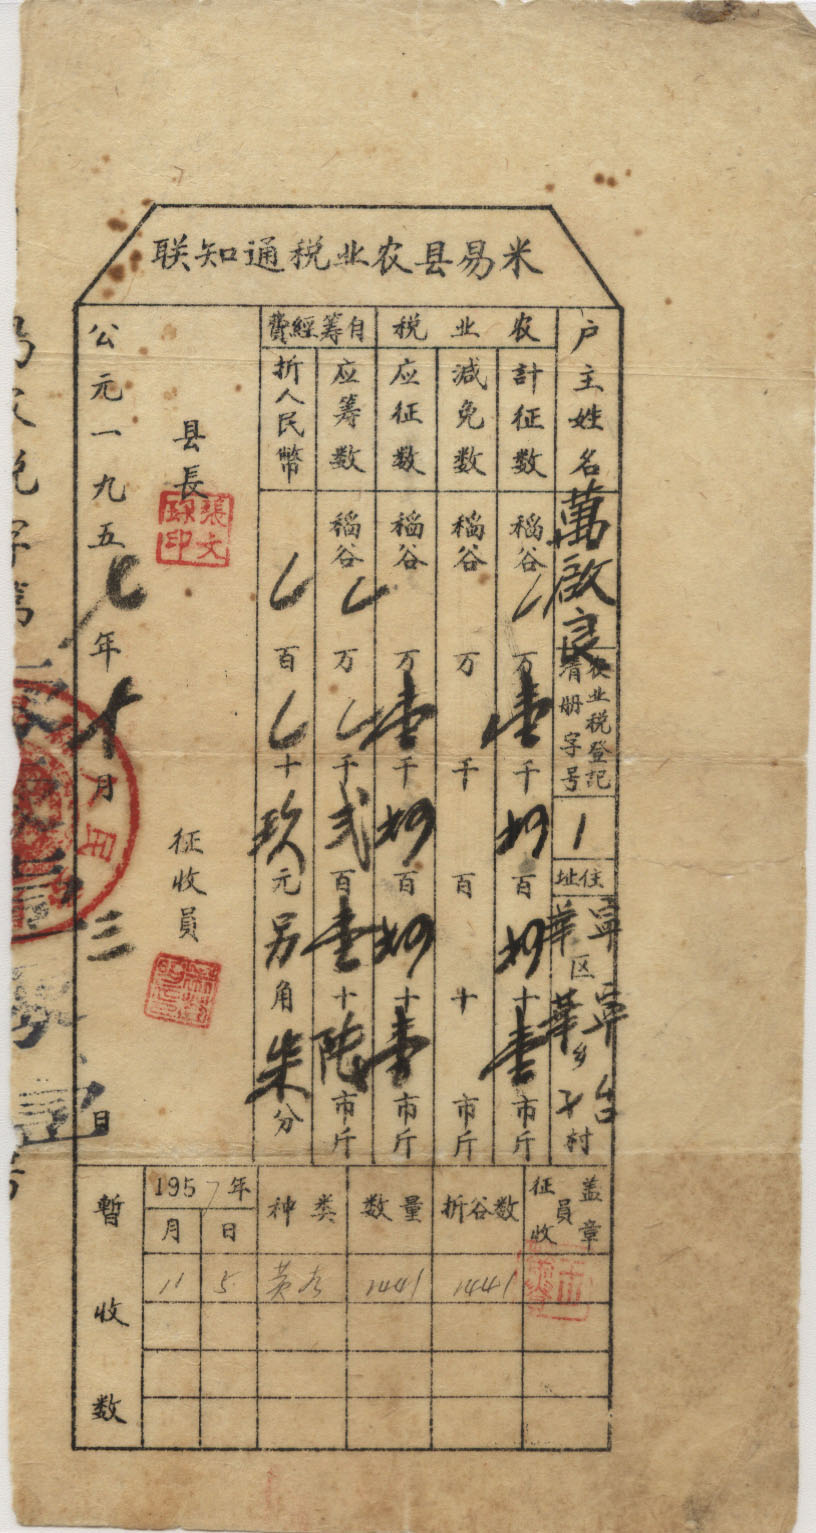 米易县农业税通知联
户主姓名 萬啟良
农业税登記清册字号 1
住址 寧華区 寧華乡 台子村
农业税
計征数 稲谷 万壹千肆百肆十壹市斤
减免数 稲谷 万 千 百 十 市斤
应征数 稲谷 万壹千肆百肆十壹市斤
自筹經費
应筹数 稲谷 万 千弍百壹十陆市斤
折人民幣 百 十玖元另角柒分
县長
張文
印
征收員
公元一九五七年十月 三日
易农税字第
暫收数
1957年 种类 数量 折谷数 征收員盖章
月 日
11 5 黄谷 1441 1441